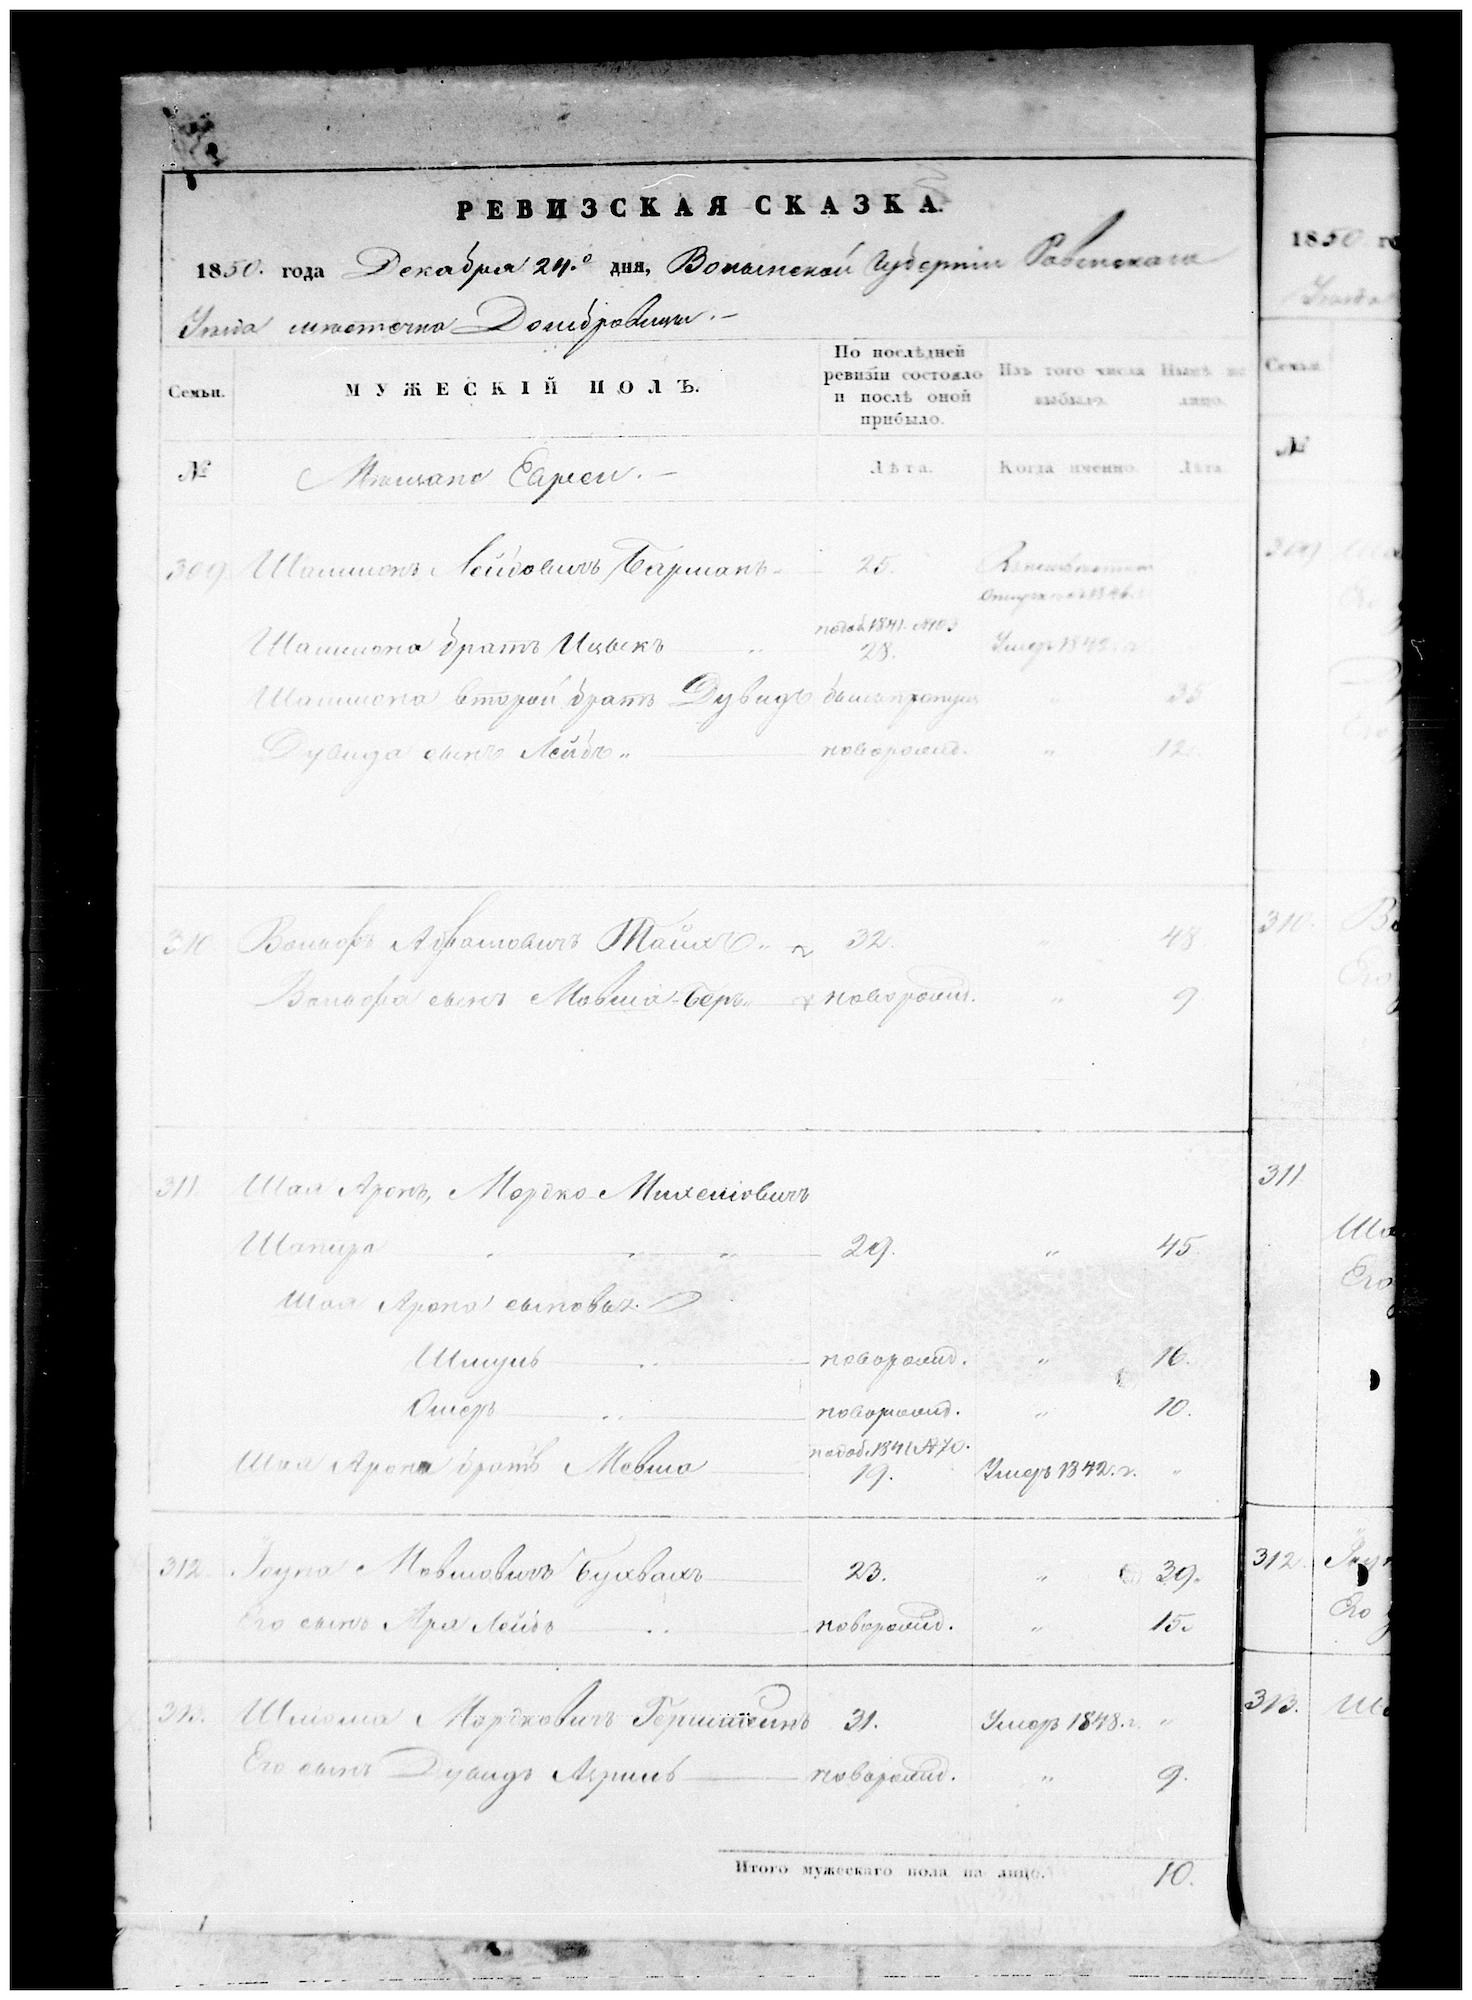 РЕВИЗСКАЯ СКАЗКА.
1850. года Декабря 24.о дня, Волынской Губерніи Ровенскаго
Уезда местечка Домбровицы.—
Семьи.
МУЖЕСКІЙ ПОЛЪ.
По послѣдней ревизіи состояло и послѣ оной прибыло.
Изъ того числа выбыло.
Нынѣ на лицо.
№
Мещане Евреи.—
Лѣта.
Когда именно.
Лѣта.
309 Шамшонъ Лейбовичъ Берманъ 25.
1846.
1841. №103
Шамшона братъ Ицыкъ " 28. Умеръ 1842. г.
Шамшона второй братъ Дувидъ былъ пропущ. " 35
Дувида сынъ Лейбъ " новорожд. " 12.
310. Вольфъ Абрамовичъ Тайхъ 32. " 48
Вольфа сынъ Мовша-Беръ новорожд. " 9
311. Шая Аронъ, Мордко Михелевичъ
Шапиро " " " 29. " 45.
Шая Арона сыновья.
Шмуль " новорожд. " 16.
Ошеръ " новорожд. " 10.
1841 №70.
Шая Арона братъ Мовша 19. Умеръ 1842. г. "
312. Іоуна Мовшовичъ Бухвахъ 23. " 39.
Его сынъ Ара Лейбъ " новорожд. " 15.
313. Шлиома Мордковичъ Герштейнъ 31. Умеръ 1848. г. "
Его сынъ Дувидъ Азриль новорожд. " 9.
Итого мужескаго пола на лицо. 10.
1850 го
№
309
310.
311
312
313.